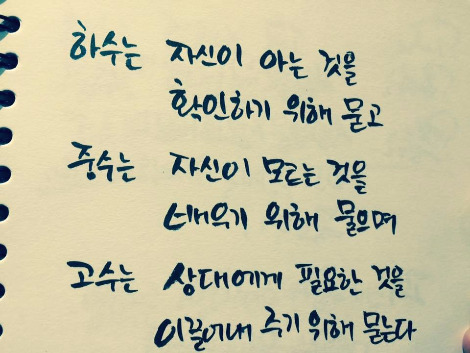 하수는 자신이 아는 것을
확인하기 위해 묻고
중수는 자신이 모르는 것을
배우기 위해 물으며
고수는 상대에게 필요한 것을
이끌어내 주기 위해 묻는다